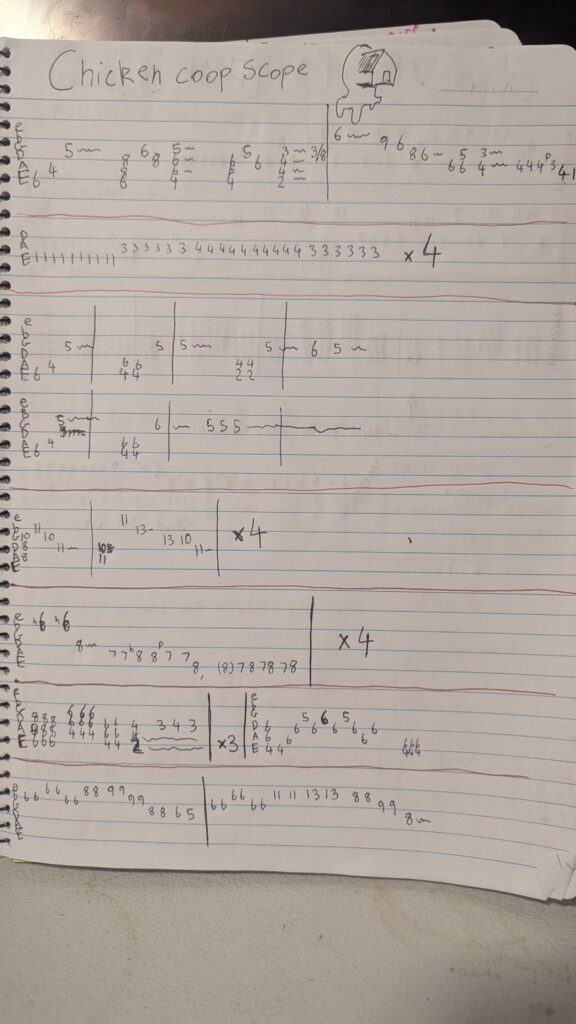 Chicken coop scope
e
b
G
D
A
E
5 6 5 5 3 3/8
6 4 8 8 6 6 6 4
8 6 6 4
6 4 4 2
6 9 6 8 6 5 3
6 6 4 4 4 4 p 3 4 1
D
A
E 1 1 1 1 1 1 1 1 1 1 3 3 3 3 3 3 4 4 4 4 4 4 4 4 4 4 3 3 3 3 3 3 x 4
e
b
G
D
A
E
5 5 5 5 6 5
6 4 6 6 4 4
4 4 2 2
e
b
G
D
A
E
5 6 5 5 5
6 4 6 6
4 4
e
b
G
D
A
E
11 11
10 10 13 13 10 x 4
8 11 11
8 11
e
b
G
D
A
E
4 6 4 6
8 7 7 h 8 8 p 7 7 x 4
8, (8) 7 8 7 8 7 8
e
b
G
D
A
E
6 6 6
8 8 8 6 6 6 6 6 4 3 4 3
8 8 4 4 4 6 6 4
6 6 6 4 4 2
x3
e
b
G
D
A
E
5 6 5
6 6 6 6 6 6
6 6 6
4 4 6 6 6
4 4 4
6 6 6 6 6 6 8 8 9 9 9 9 8 8 6 5
6 6 6 6 6 6 11 11 13 13 8 8 9 9 8